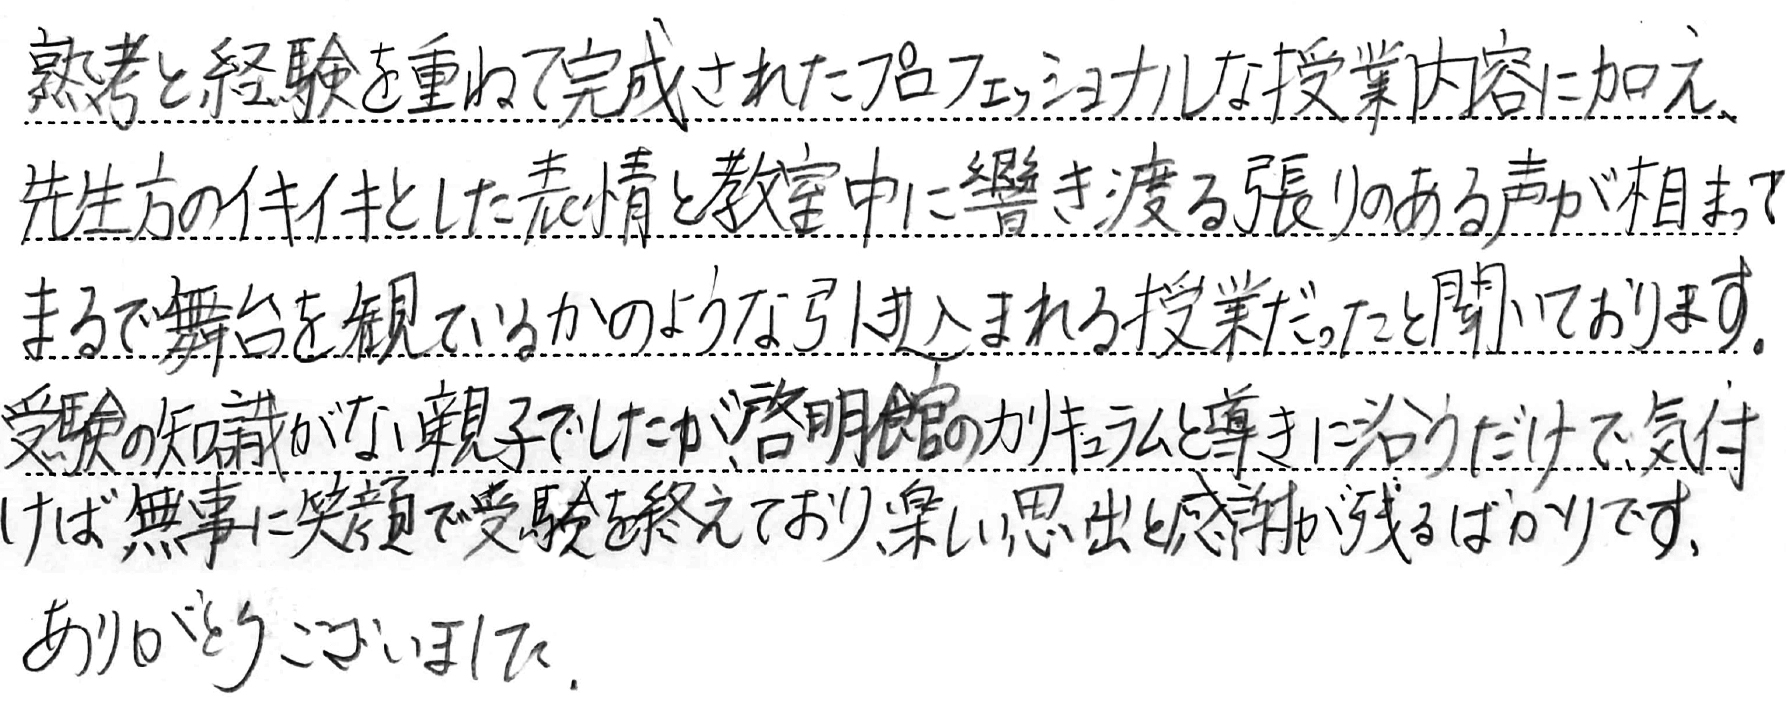 熟考と経験を重ねて完成されたプロフェッショナルな授業内容に加え、
先生方のイキイキとした表情と教室中に響き渡る張りのある声が相まって
まるで舞台を観ているかのような引き込まれる授業だったと聞いております。
受験の知識がない親子でしたが、啓明館のカリキュラムと導きに沿うだけで、気付
けば無事に笑顔で受験を終えており、楽しい思い出と感謝が残るばかりです。
ありがとうございました.